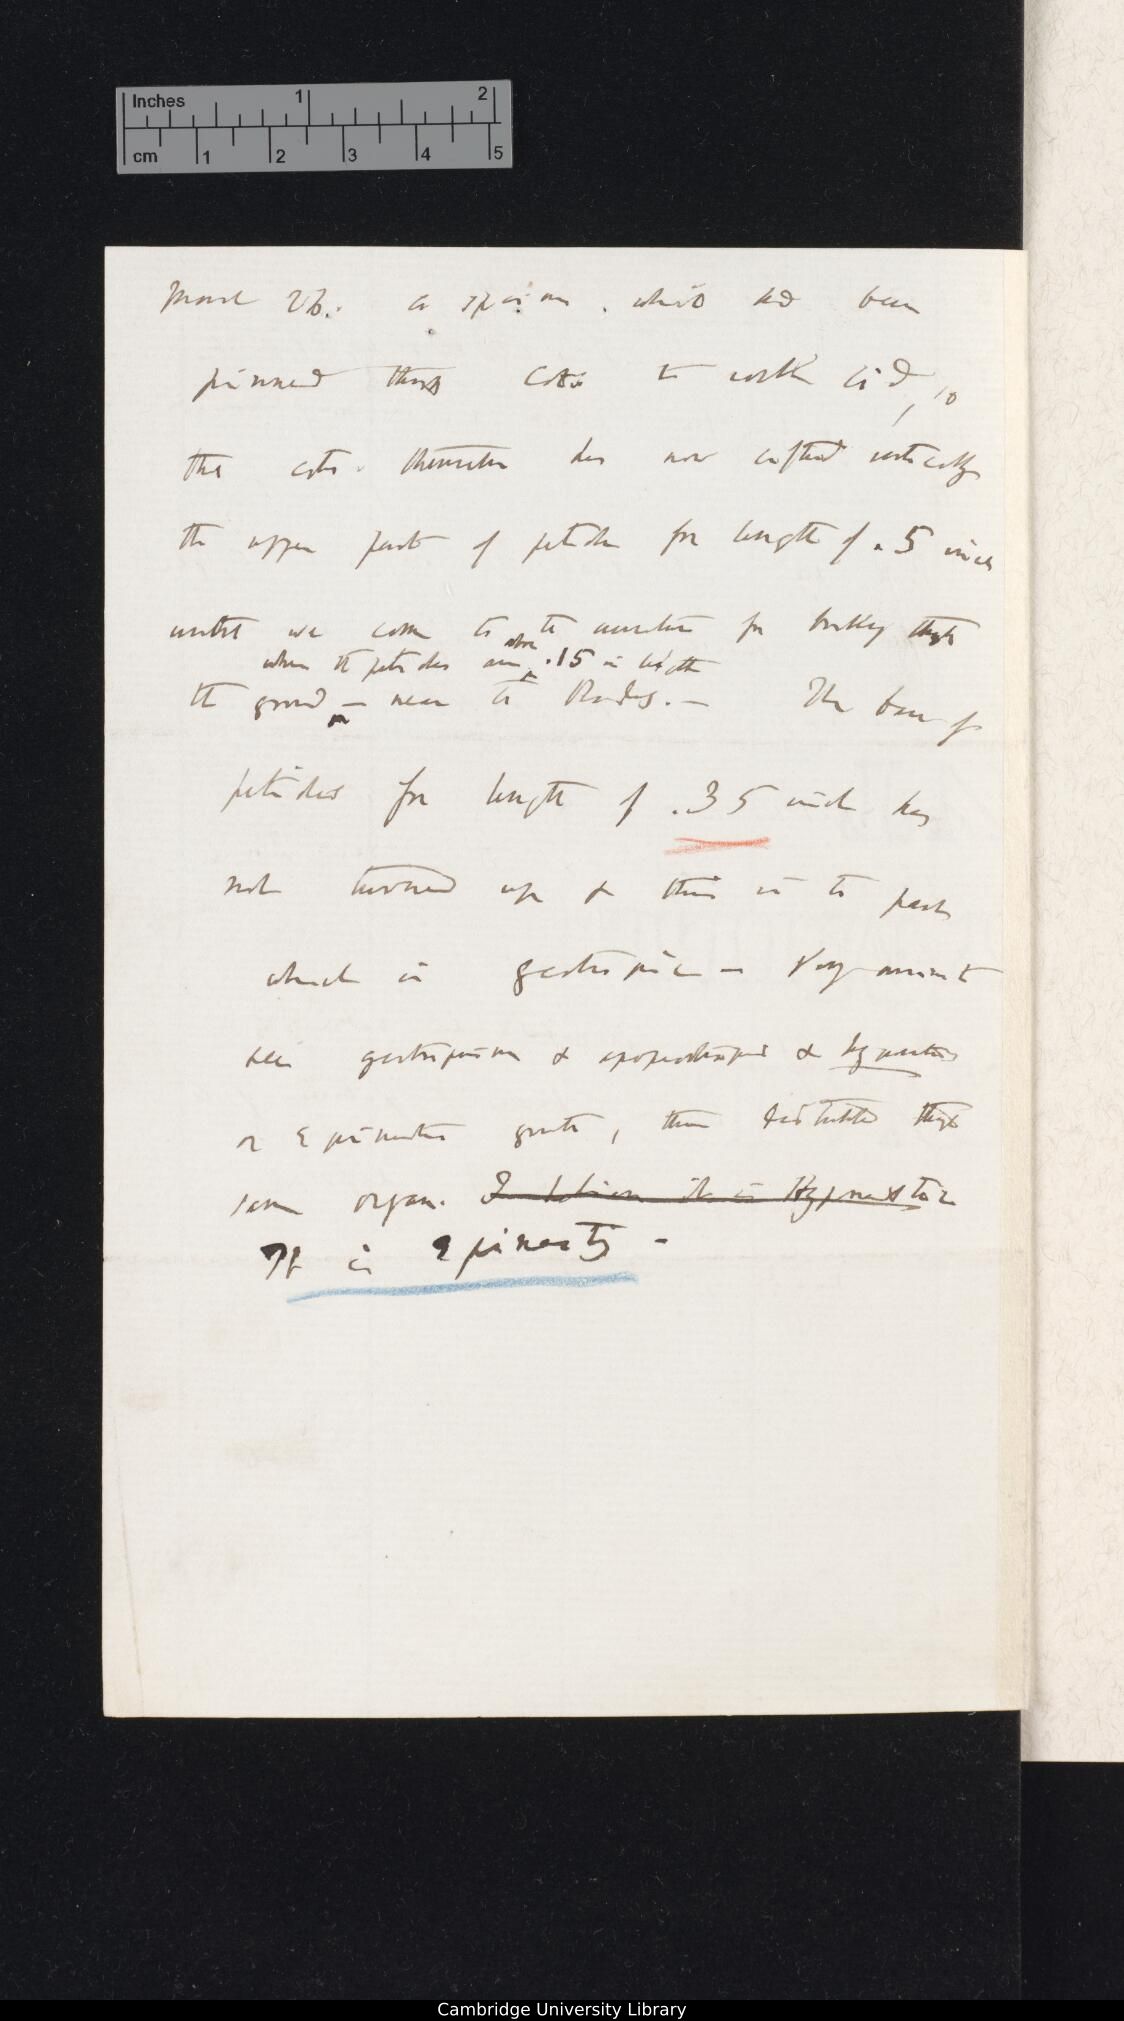 Inches 1 2
cm 1 2 3 4 5
March 26. a specimen which had been
pinned through coty to cork lid, so
the coty. themselves has now lifted vertically
the upper part of petioles for length of .5 inch
until we come to the for breaking through
when the petioles are above .15 in length
the ground — near to Blades. — The base of
petioles for length of .35 inch has
not turned up & this is the part
which is geotropic — You cannot
see geotropism & apogeotropism & hyponastic
or Epinastic growth, thus distributed through
same organ. it is Hyponastic
It is Epinasty —
Cambridge University Library